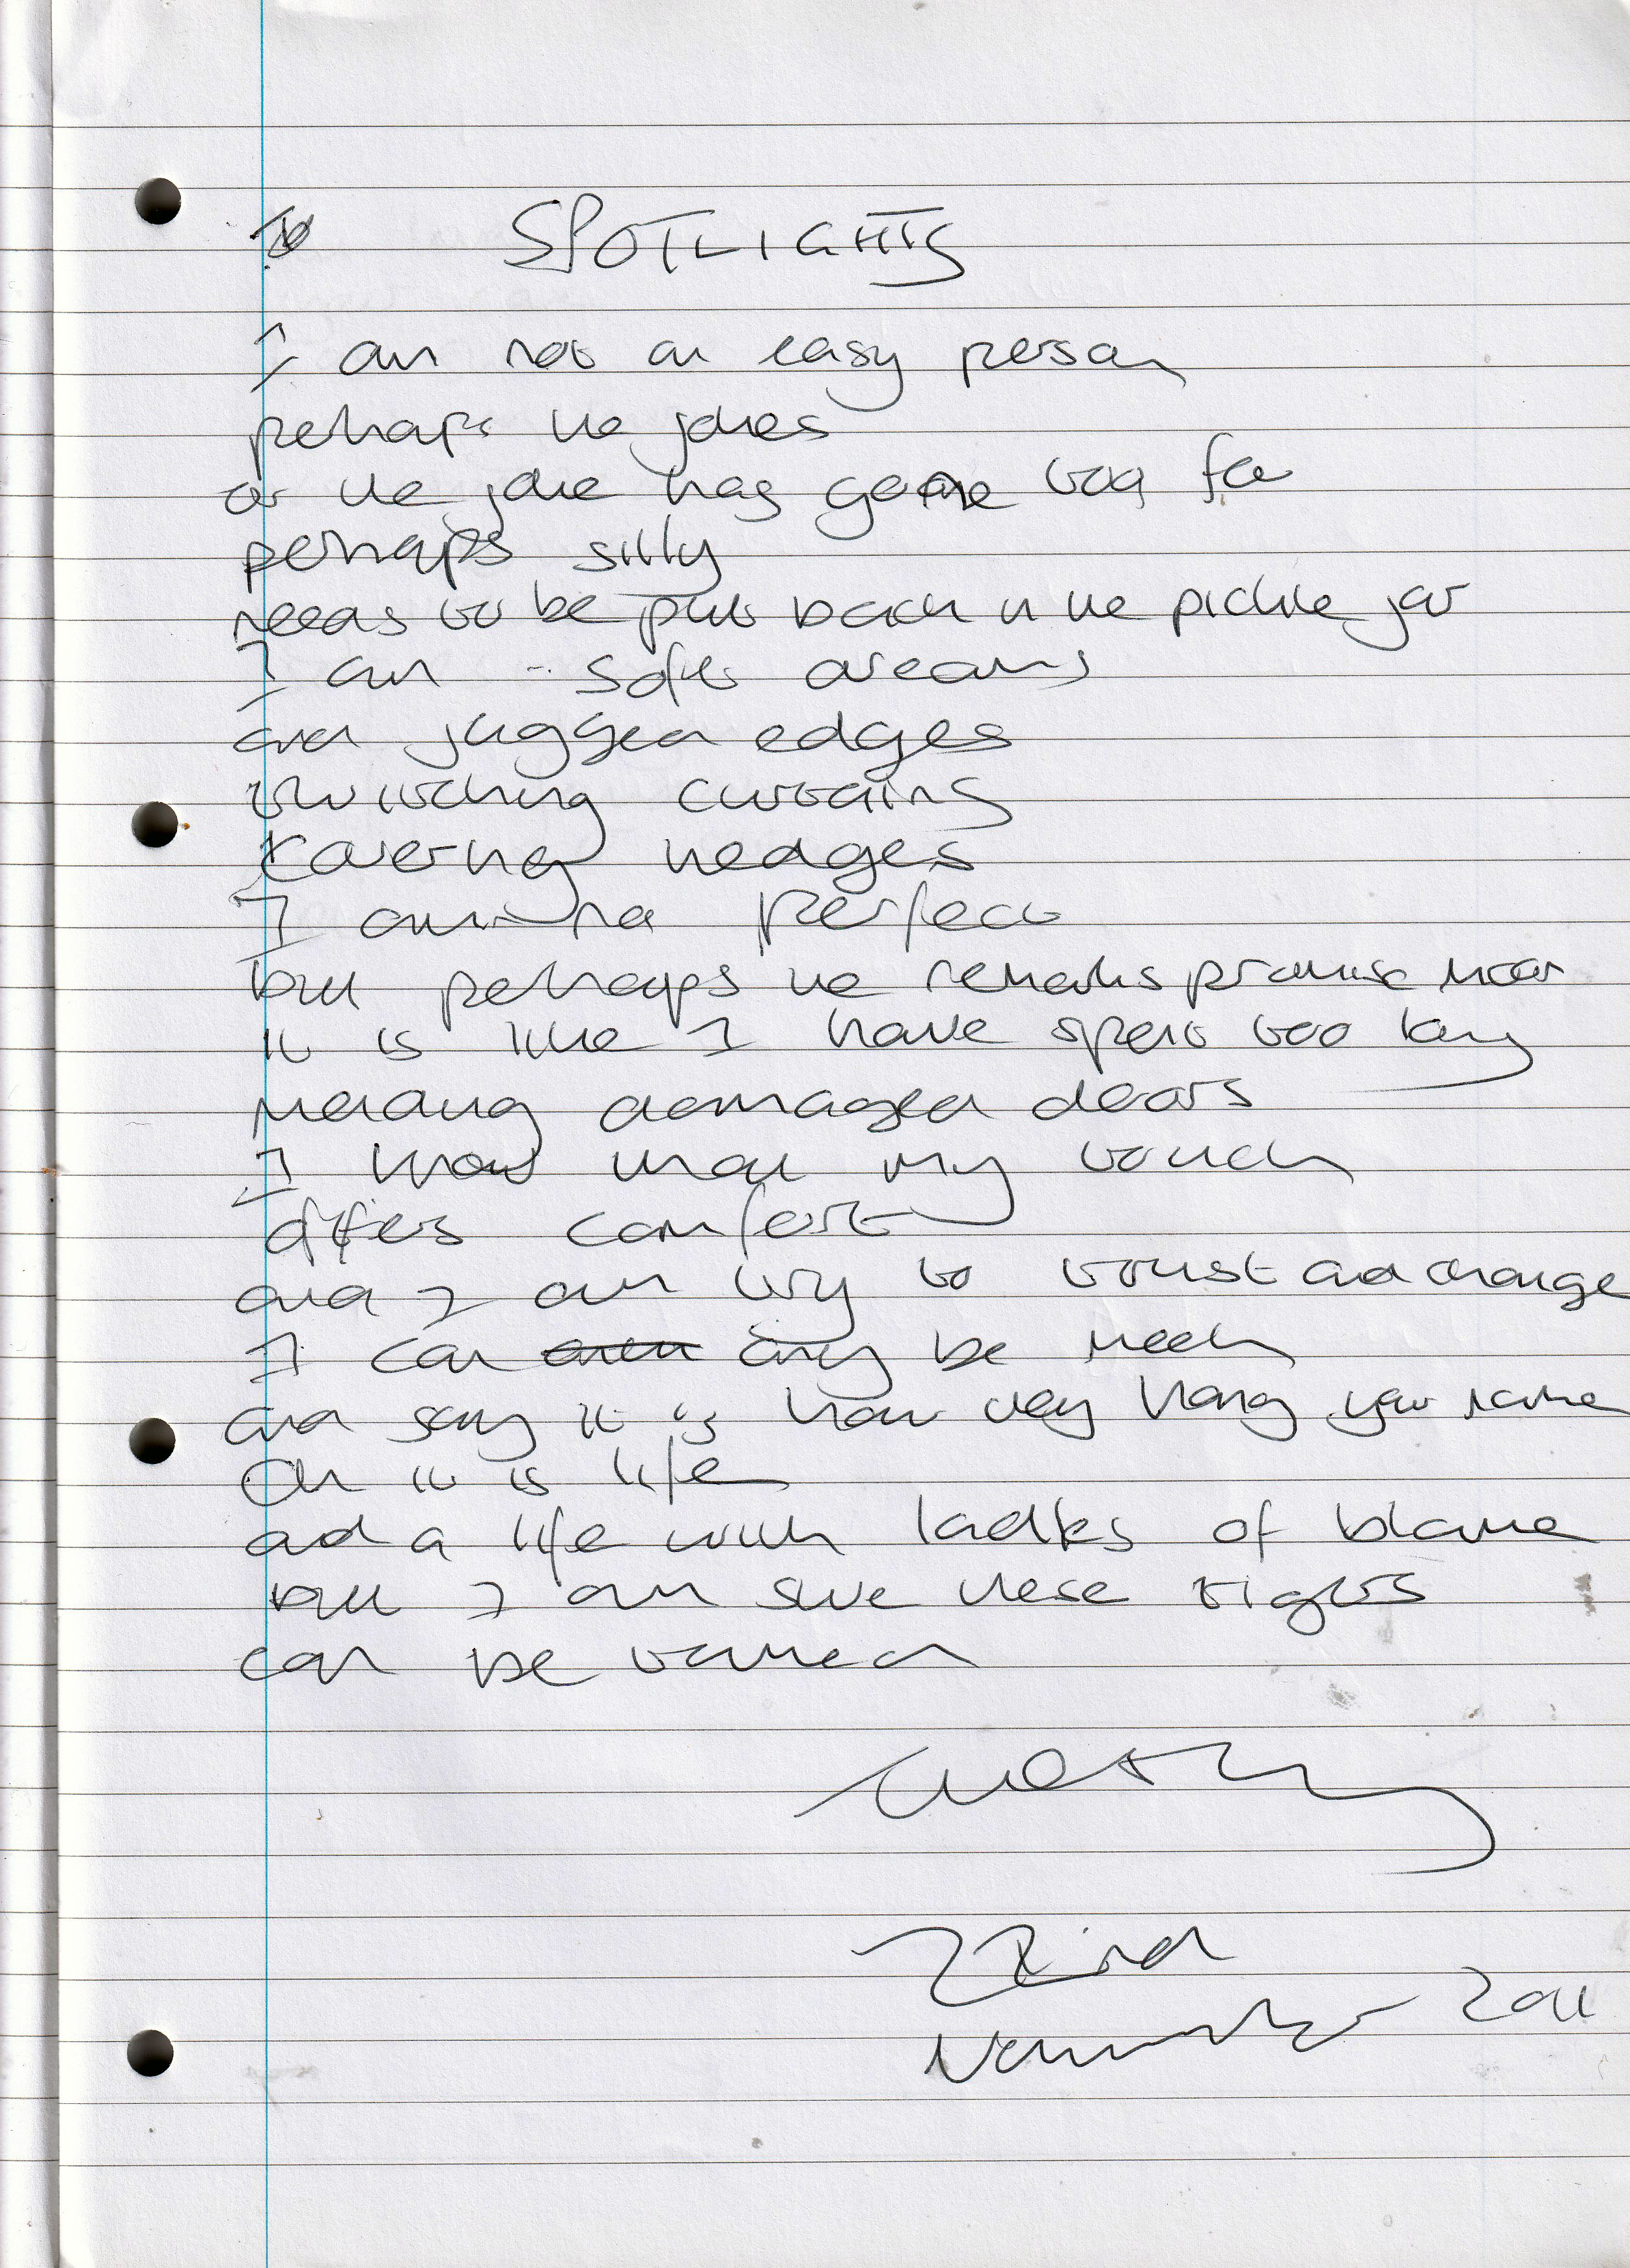 SPOTLIGHTS
I am not an easy person
perhaps the jokes
or the joke has gone too far
perhaps silly
needs to be put back in the pickle jar
I am soft dreams
and jugged edges
twitching curtains
hedges
I am no perfect
but perhaps the remarks promise more
it is like I have spent too long
mending damaged doors
I know that my touch
offers comfort
and I am try to trust and change
I can only be meek
and say it is how they hang your name
Oh it is life
and a life with ladles of blame
but I am sure these tigers
can be tamed
22nd
November 2011